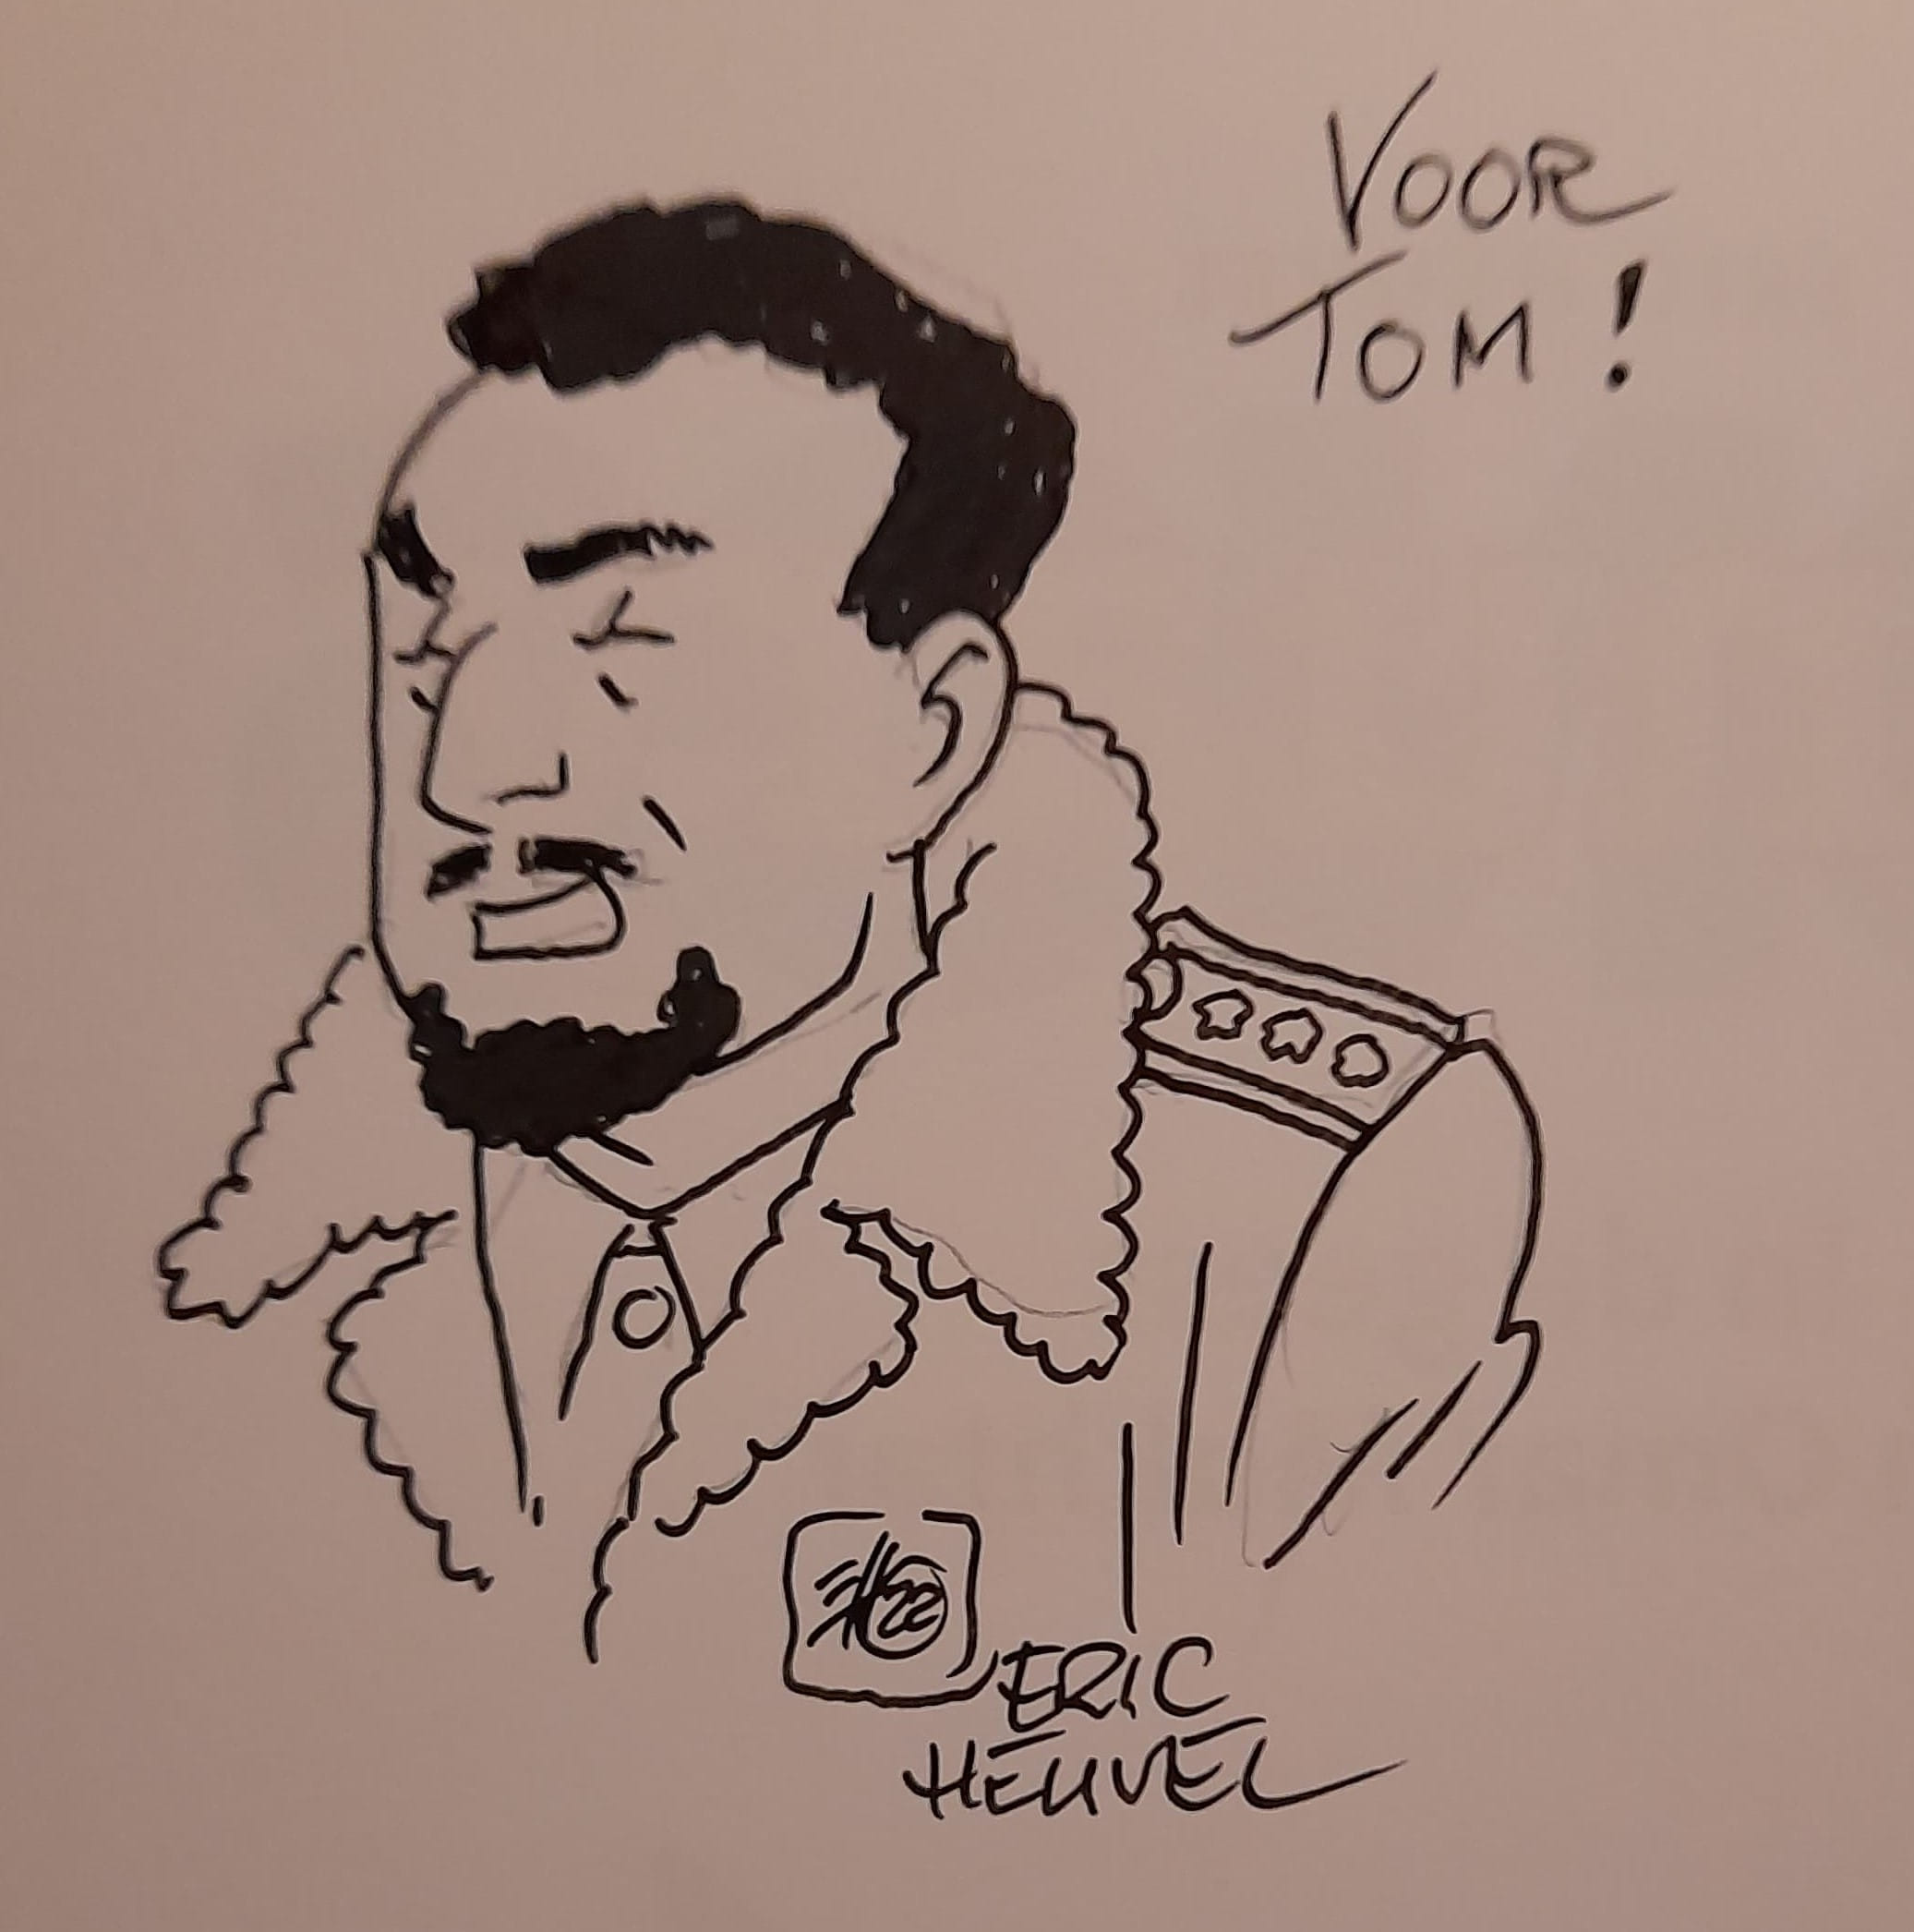 VOOR
TOM!
EH22
ERIC
HEUVEL